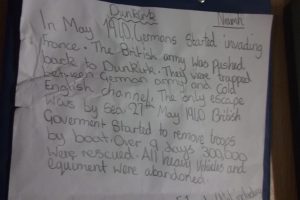 Dunkirk Niamh
In May 1940, Germans started invading
France. The British army was pushed
back to Dunkirk. They were trapped
between German army and cold
English channel. The only escape
was by sea. 27th May 1940 British
Goverment started to remove troops
by boat. Over 9 days 300,000
were rescued. All heavy vehicles and
equiment were abandoned.